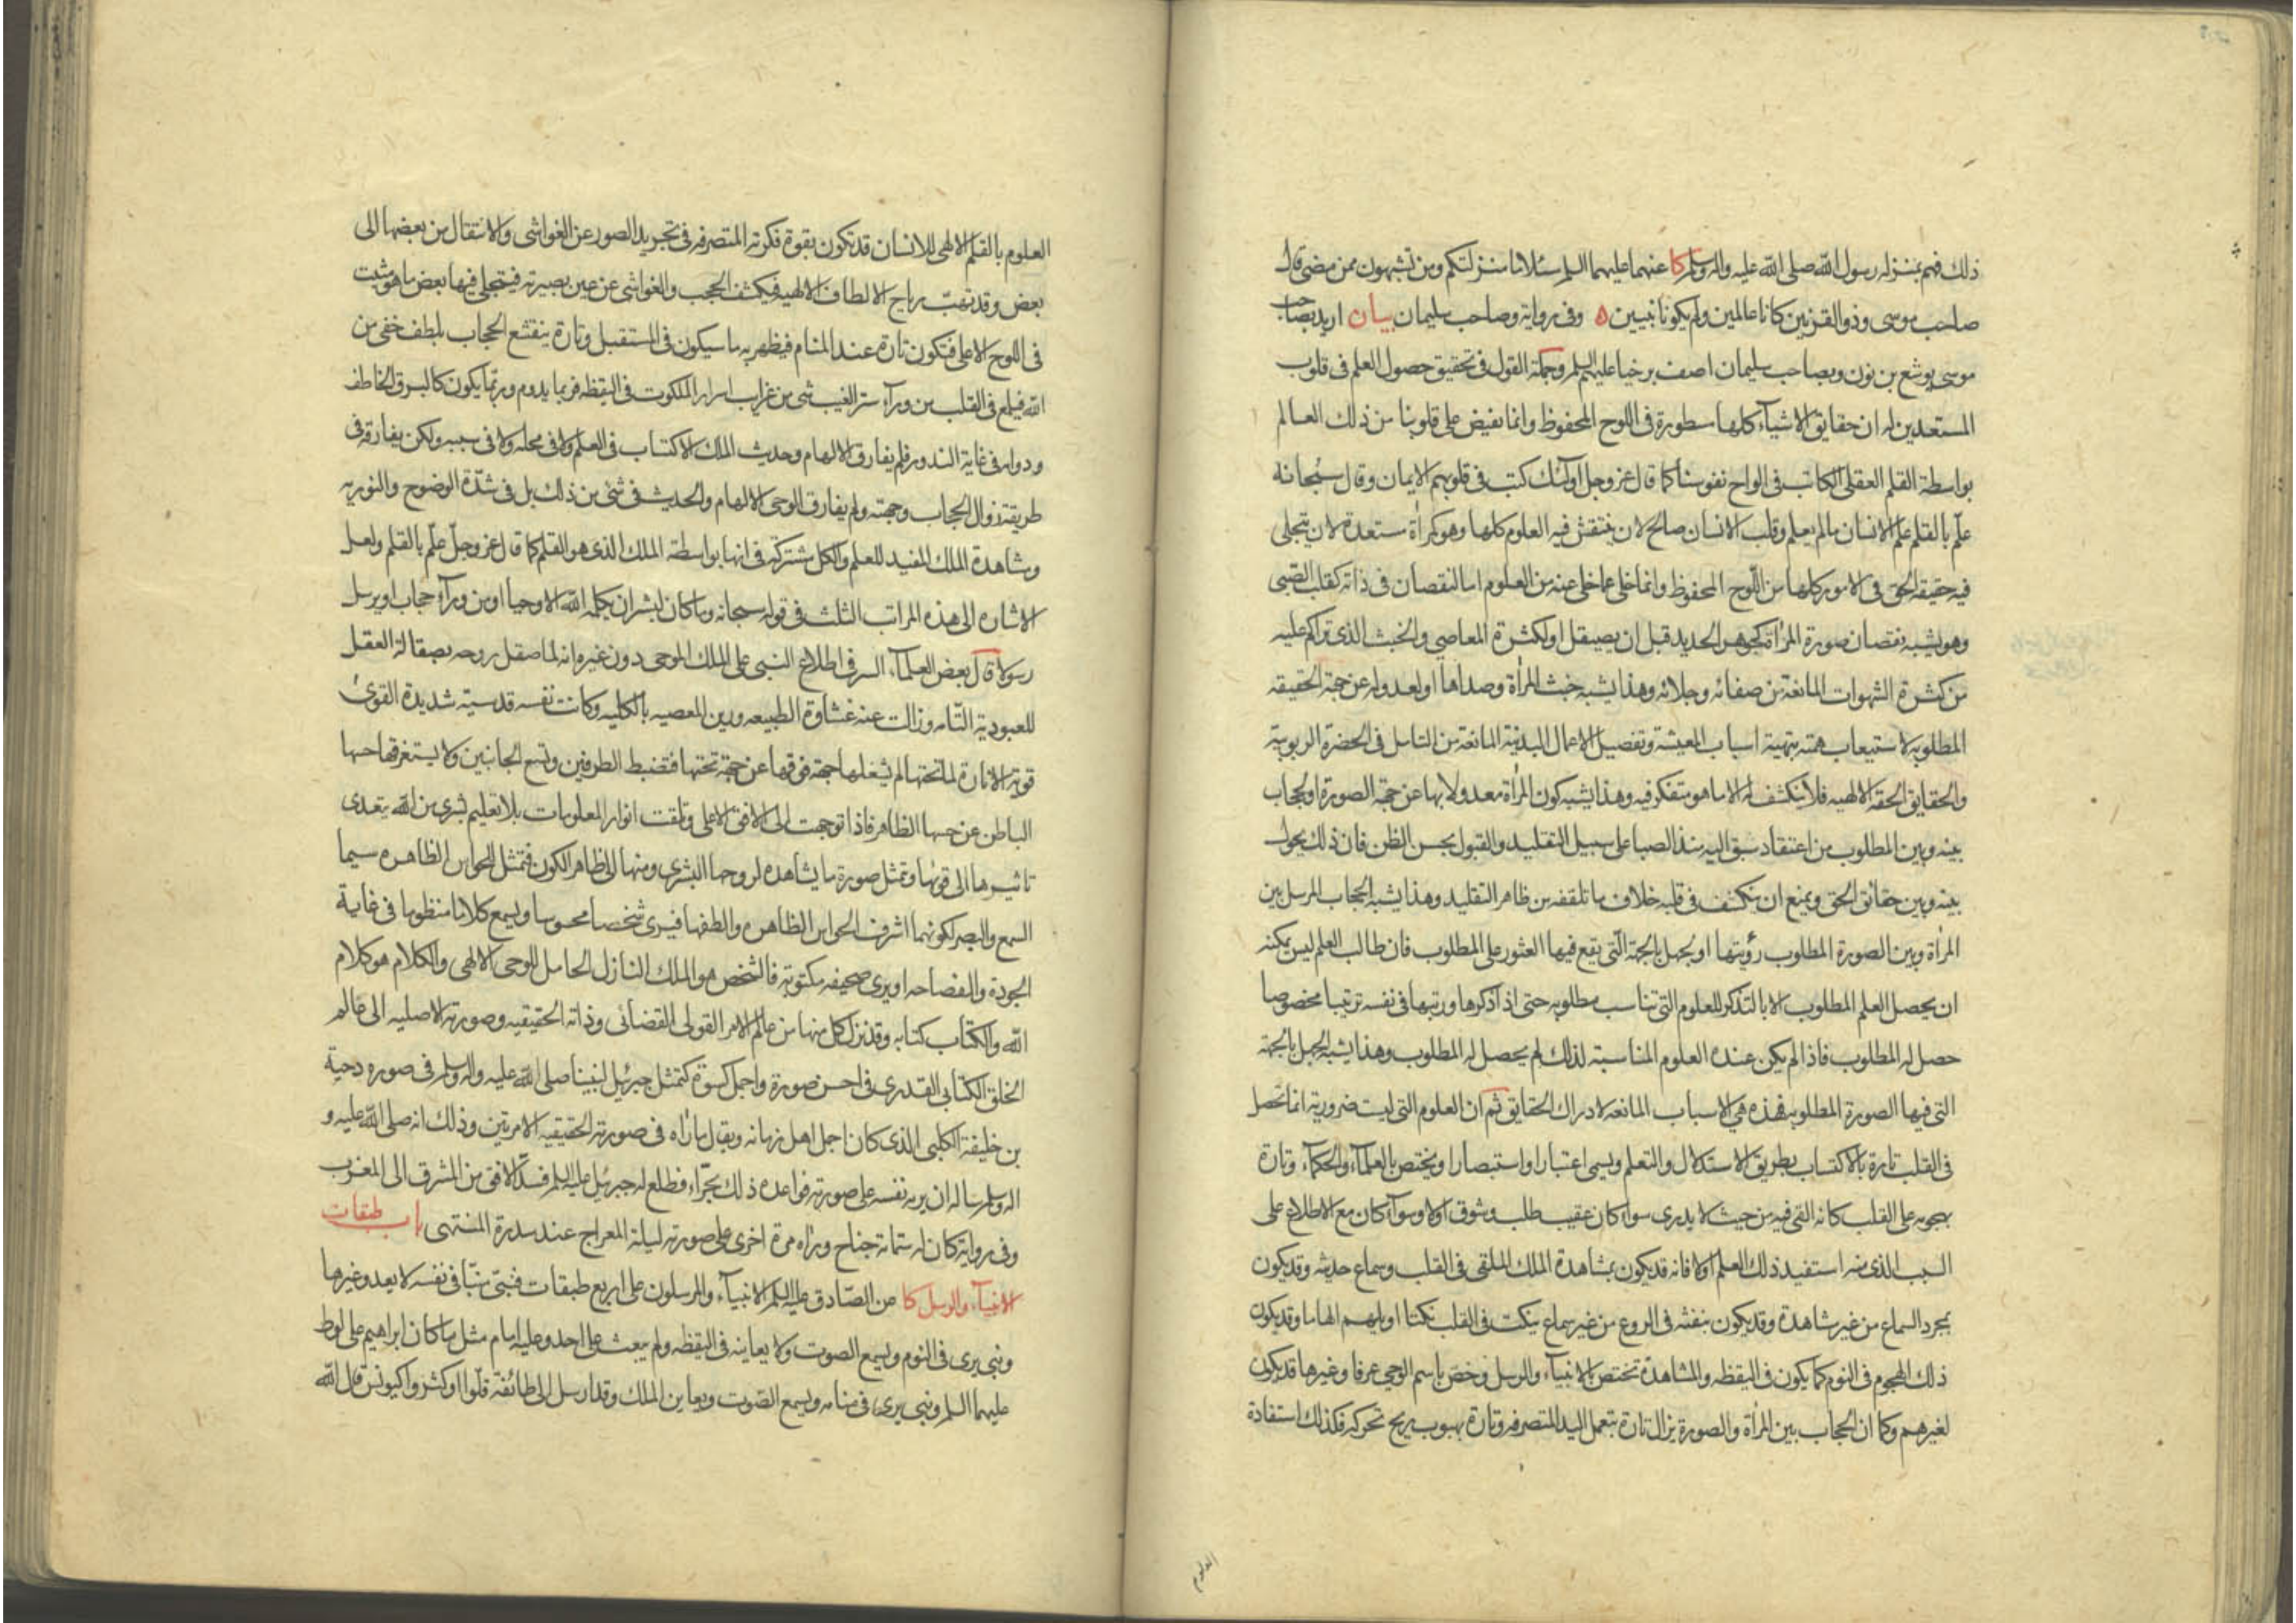 ذلك فهم بمنزله رسول الله صلى الله عليه واله وسلم كا عنهما عليهما السلم سئلا ما منزلتكم ومن تشبهون ممن مضى قال
صاحب موسى وذو القرنين كانا عالمين ولم يكونا نبيين ه وفى رواية وصاحب سليمان بيان اريد بصاحب
موسى يوشع بن نون وبصاحب سليمان اصف برخيا عليهم السلم وجملة القول فى تحقيق حصول العلم فى قلوب
المستعدين له ان حقايق الاشيآء كلها مسطورة فى اللوح المحفوظ وانما تفيض على قلوبنا من ذلك العالم
بواسطة القلم العقلى الكاتب فى الواح نفوسنا كما قال عز وجل اولئك كتب فى قلوبهم الايمان وقال سبحانه
علّم بالقلم علم الانسان ما لم يعلم وقلب الانسان صالح لان ينتقش فيه العلوم كلها وهو كمرآة مستعدة لان يتجلى
فيه حقيقة الحق فى الامور كلها من اللوح المحفوظ وانما خلى عما خلى عنه من العلوم اما لنقصان فى ذاته كقلب الصبى
وهو يشبه نقصان صورة المرآة كجوهر الحديد قبل ان يصيقل او لكثرة المعاصى والخبث الذى تراكم عليه
من كثرة الشهوات المانعة من صفائه وجلائه وهذا يشبه خبث المرآة وصداها او لعدوله عن جهة الحقيقه
المطلوبه لاستيعاب همته بتهيئة اسباب المعيشة وتفصيل الاعمال البدنية المانعة من التامل فى الحضرة الربوبية
والحقايق الحقه الالهيه فلا ينكشف له الا ما هو متفكر فيه وهذا يشبه كون المرآة معدولا بها عن جهة الصورة او لحجاب
بينه وبين المطلوب من اعتقاد سبق اليه منذ الصبا على سبيل التقليد والقبول بحسن الظن فان ذلك يحول
بينه وبين حقائق الحق ويمنع ان ينكشف فى قلبه خلاف ما تلقفه من ظاهر التقليد وهذا يشبه الحجاب المرسل بين
المرآة وبين الصورة المطلوب رؤيتها او لجهل بالجهة التى يقع فيها العثور على المطلوب فان طالب العلم ليس يمكنه
ان يحصل العلم المطلوب الا بالتذكر للعلوم التى تناسب مطلوبه حتى اذا تذكرها ورتبها فى نفسه ترتيبا مخصوصا
حصل له المطلوب فاذا لم يكن عنده العلوم المناسبة لذلك لم يحصل له المطلوب وهذا يشبه الجهل بالجهة
التى فيها الصورة المطلوبه فهذه هى الاسباب المانعة لادراك الحقايق ثم ان العلوم التى ليست ضرورية انما تحصل
فى القلب تارة بالاكتساب بطريق الاستدلال والتعلم ويسمى اعتبارا واستبصارا ويختص بالعلمآء والحكمآء وتارة
بهجومه على القلب كانه القى فيه من حيث لا يدرى سواء كان عقيب طلب وشوق اولا وسوآء كان مع الاطلاع على
السبب الذى منه استفيد ذلك العلم اولا فانه قد يكون بمشاهدة الملك الملقى فى القلب وسماع حديثه وقد يكون
بمجرد السماع من غير مشاهدة وقد يكون بنفثه فى الروع من غير سماع ينكت فى القلب نكتا او يلهم الهاما وقد يكون
ذلك الهجوم فى النوم كما يكون فى اليقظه والمشاهدة تختص بالانبيآء والرسل وخصّ باسم الوحى عرفا وغيرها قد يكون
لغيرهم وكما ان الحجاب بين المرآة والصورة يزال تارة بتعمل اليد المتصرفه وتارة بهبوب ريح تحركه فكذلك استفادة
العلوم
العلوم بالقلم الالهى للانسان قد تكون بقوة فكرته المتصرفه فى تجريد الصور عن الغواشى والانتقال من بعضها الى
بعض وقد تهبّ رياح الالطاف الالهيه فيكشف الحجب والغواشى عن عين بصيرته فيتجلى فيها بعض ما هو مثبت
فى اللوح الاعلى فتكون تارة عند المنام فيظهر به ما سيكون فى المستقبل وتارة ينقشع الحجاب بلطف خفى من
الله فيلمع فى القلب من ورآء ستر الغيب شى من غرايب اسرار الملكوت فى اليقظه فربما يدوم وربما يكون كالبرق الخاطف
ودوامه فى غاية الندور فلم يفارق الالهام وحديث الملك الاكتساب فى العلم ولا فى محله ولا فى سببه ولكن يفارقه فى
طريقة زوال الحجاب وجهته ولم يفارق الوحى الالهام والحديث فى شئ من ذلك بل فى شدّة الوضوح والنوريه
ومشاهدة الملك المفيد للعلم والكل مشتركة فى انها بواسطة الملك الذى هو القلم كما قال عز وجلّ علّم بالقلم ولعل
الاشاره الى هذه المراتب الثلث فى قوله سبحانه وما كان لبشر ان يكلمه الله الا وحيا او من ورآء حجاب او يرسل
رسولا قال بعض العلمآء السر فى اطلاع النبى على الملك الموحى دون غيره انه لما صقل روحه بصقالة العقل
للعبودية التّامه وزالت عنه غشاوة الطبيعه ورين المعصيه بالكليه وكانت نفسه قدسية شديدة القوى
قوية الانارة لما تحتها لم يشغلها جهة فوقها عن جهة تحتها فتضبط الطرفين وتسع الجانبين ولا يستغرقها حسها
الباطن عن حسها الظاهر فاذا توجهت الى الافق الاعلى وتلقت انوار المعلومات بلا تعليم بشرى من الله يتعدى
تاثيرها الى قويها وتمثل صورة ما يشاهده لروحها البشرى ومنها الى ظاهر الكون فتمثل للحواس الظاهره سيما
السمع والبصر لكونهما اشرف الحواس الظاهره والطفها فيرى شخصا محسوسا ويسمع كلاما منظوما فى غاية
الجودة والفصاحه او يرى صحيفه مكتوبة فالشخص هو الملك النازل الحامل للوحى الالهى والكلام هو كلام
الله والكتاب كتابه وقد نزل كل منها من عالم الامر القولى القضائى وذاته الحقيقيه وصورته الاصليه الى عالم
الخلق الكتابى القدرى فى احسن صورة واجمل كسوة كتمثل جبرئيل لنبينا صلى الله عليه واله وسلم فى صوره دحية
بن خليفة الكلبى الذى كان اجمل اهل زمانه ويقال ما رآه فى صورته الحقيقيه الا مرتين وذلك انه صلى الله عليه و
اله وسلم ساله ان يريه نفسه على صورته فواعده ذلك بحرّاء فطلع له جبرئيل عليه السلم فسدّ الافق من المشرق الى المغرب
وفى رواية كان له ستمائة جناح ورآه مرة اخرى على صورته ليلة المعراج عند سدرة المنتهى باب طبقات
الانبيآء والرسل كا عن الصّادق عليه السلم الانبيآء والمرسلون على اربع طبقات فنبىّ منبّا فى نفسه لا يعدو غيرها
ونبى يرى فى النوم ويسمع الصوت ولا يعاينه فى اليقظه ولم يبعث على احد وعليه امام مثل ما كان ابراهيم على لوط
عليهما السلم ونبى يرى فى منامه ويسمع الصّوت ويعاين الملك وقد ارسل الى طائفة قلّوا او كثروا كيونس قال الله